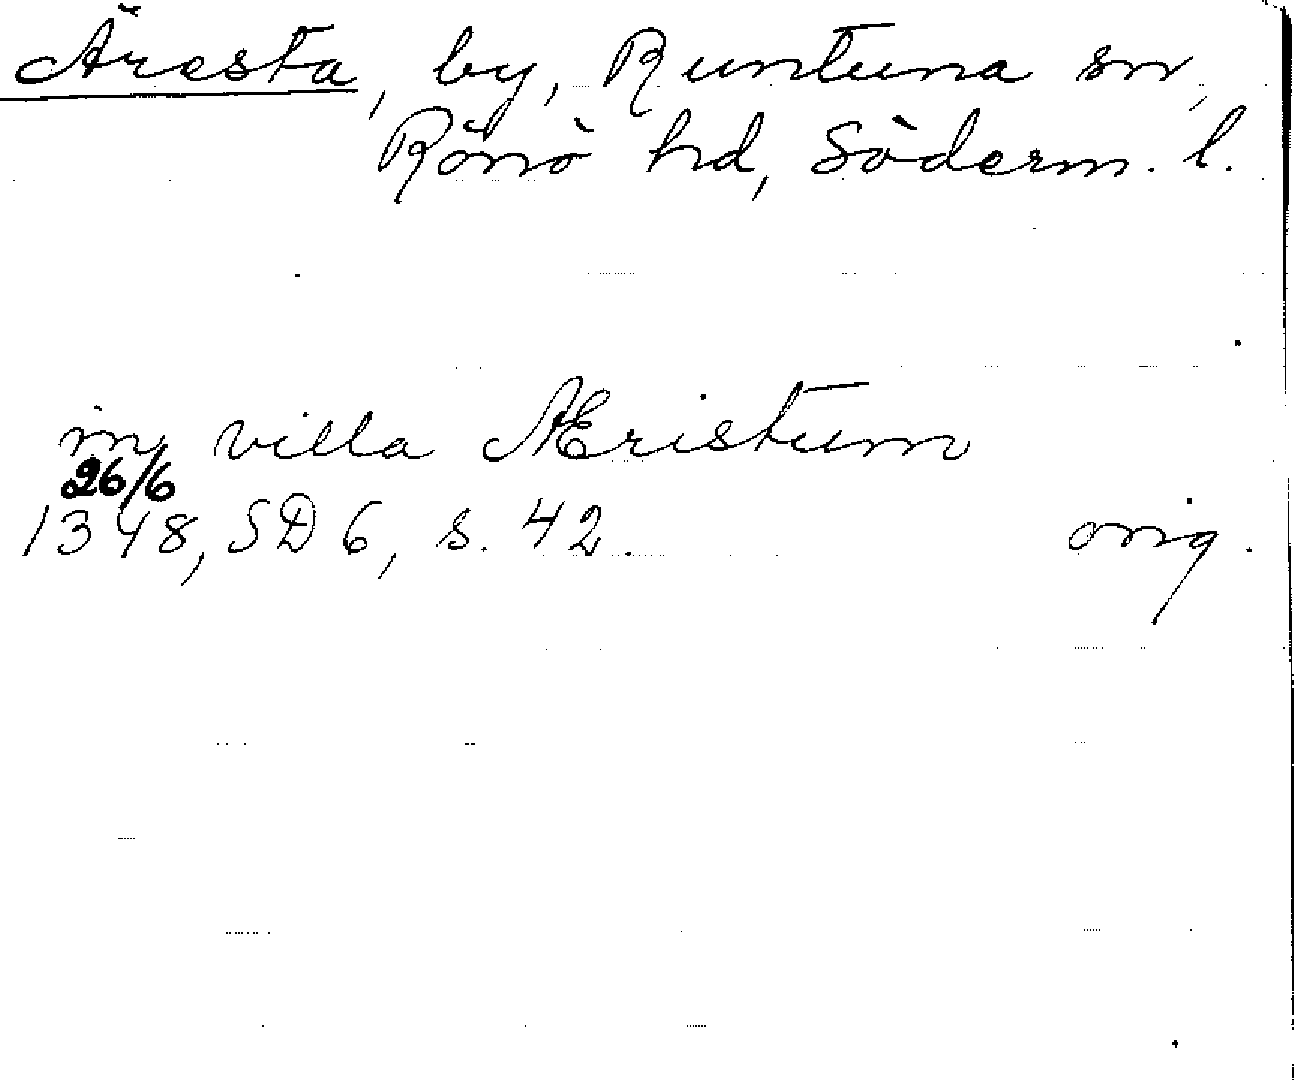 Äresta, by, Runtuna sn,
Rönö hd, Söderm. l.
in villa Æristum
26/6
1348, SD 6, s. 42.
orig.